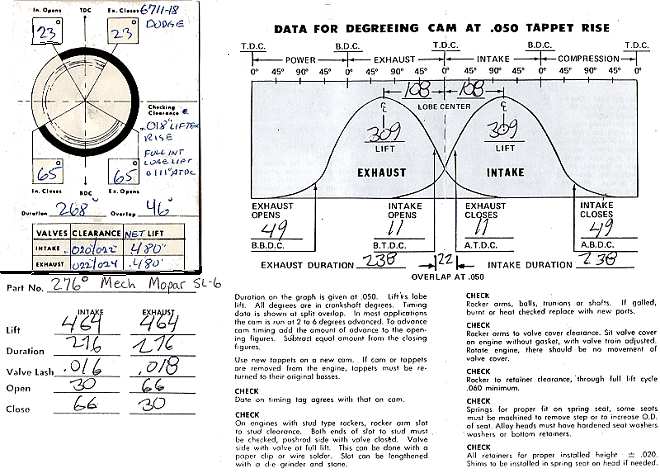 In. Opens TDC Ex. Closes 6711-18
DODGE
23° 23°
Checking
Clearance
.018" LIFTER
RISE
FULL INT
LOBE LIFT
@ 111° ATDC
65° 65°
In. Closes BDC Ex. Opens
Duration 268° Overlap 46°
VALVES CLEARANCE NET LIFT
INTAKE .020/022" .480"
EXHAUST .022/024 .480"
Part No. 276° Mech Mopar SL-6
INTAKE EXHAUST
Lift 464 464
Duration 276 276
Valve Lash .016 .018
Open 30 66
Close 66 30
DATA FOR DEGREEING CAM AT .050 TAPPET RISE
T.D.C. B.D.C. T.D.C. B.D.C. T.D.C.
POWER EXHAUST INTAKE COMPRESSION
0° 45° 90° 45° 0° 45° 90° 45° 0° 45° 90° 45° 0° 45° 90° 45° 0°
108 108
LOBE CENTER
℄ ℄
309 309
LIFT LIFT
EXHAUST INTAKE
EXHAUST OPENS INTAKE OPENS EXHAUST CLOSES INTAKE CLOSES
49 11 11 49
B.B.D.C. B.T.D.C. A.T.D.C. A.B.D.C.
EXHAUST DURATION 238 22 INTAKE DURATION 238
OVERLAP AT .050
Duration on the graph is given at .050. Lift is lobe
lift. All degrees are in crankshaft degrees. Timing
data is shown at split overlap. In most applications
the cam is run at 2 to 6 degrees advanced. To advance
cam timing add the amount of advance to the open-
ing figures. Subtract equal amount from the closing
figures.
Use new tappets on a new cam. If cam or tappets
are removed from the engine, tappets must be re-
turned to their original bosses.
CHECK
Date on timing tag agrees with that on cam.
CHECK
On engines with stud type rockers, rocker arm slot
to stud clearance. Both ends of slot to stud must
be checked, pushrod side with valve closed. Valve
side with valve at full lift. This can be done with a
paper clip or wire solder. Slot can be lengthened
with a die grinder and stone.
CHECK
Rocker arms, balls, trunions or shafts. If galled,
burnt or heat checked replace with new parts.
CHECK
Rocker arms to valve cover clearance. Sit valve cover
on engine without gasket, with valve train adjusted.
Rotate engine, there should be no movement of
valve cover.
CHECK
Rocker to retainer clearance, through full lift cycle
.060 minimum.
CHECK
Springs for proper fit on spring seat, some seats
must be machined to remove step or to increase O.D.
of seat. Alloy heads must have hardened seat washers
washers or bottom retainers.
CHECK
All retainers for proper installed height ± .020.
Shims to be installed in spring seat on head if needed.